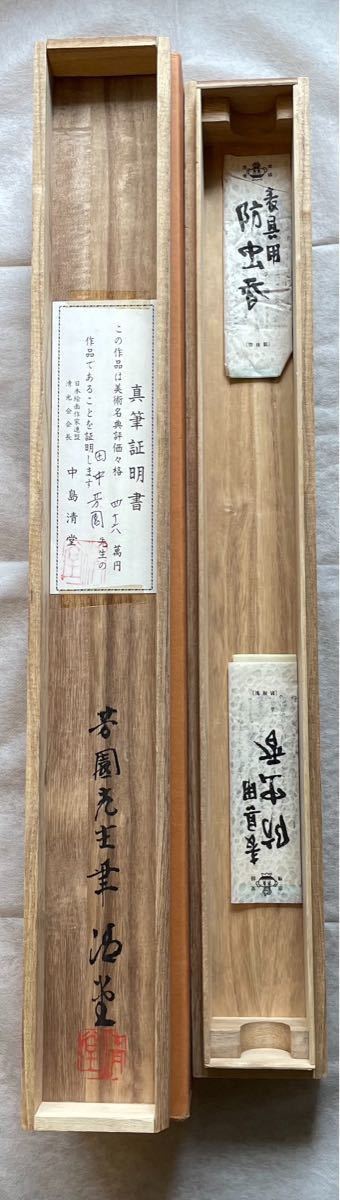 真筆証明書
この作品は美術名典評価々格 四十六 萬円
田中芳園 先生の
作品であることを証明します
日本絵画作家連盟
清光会会長 中島清堂
芳園先生筆 清堂
表具用
防虫香
表具用
防虫香